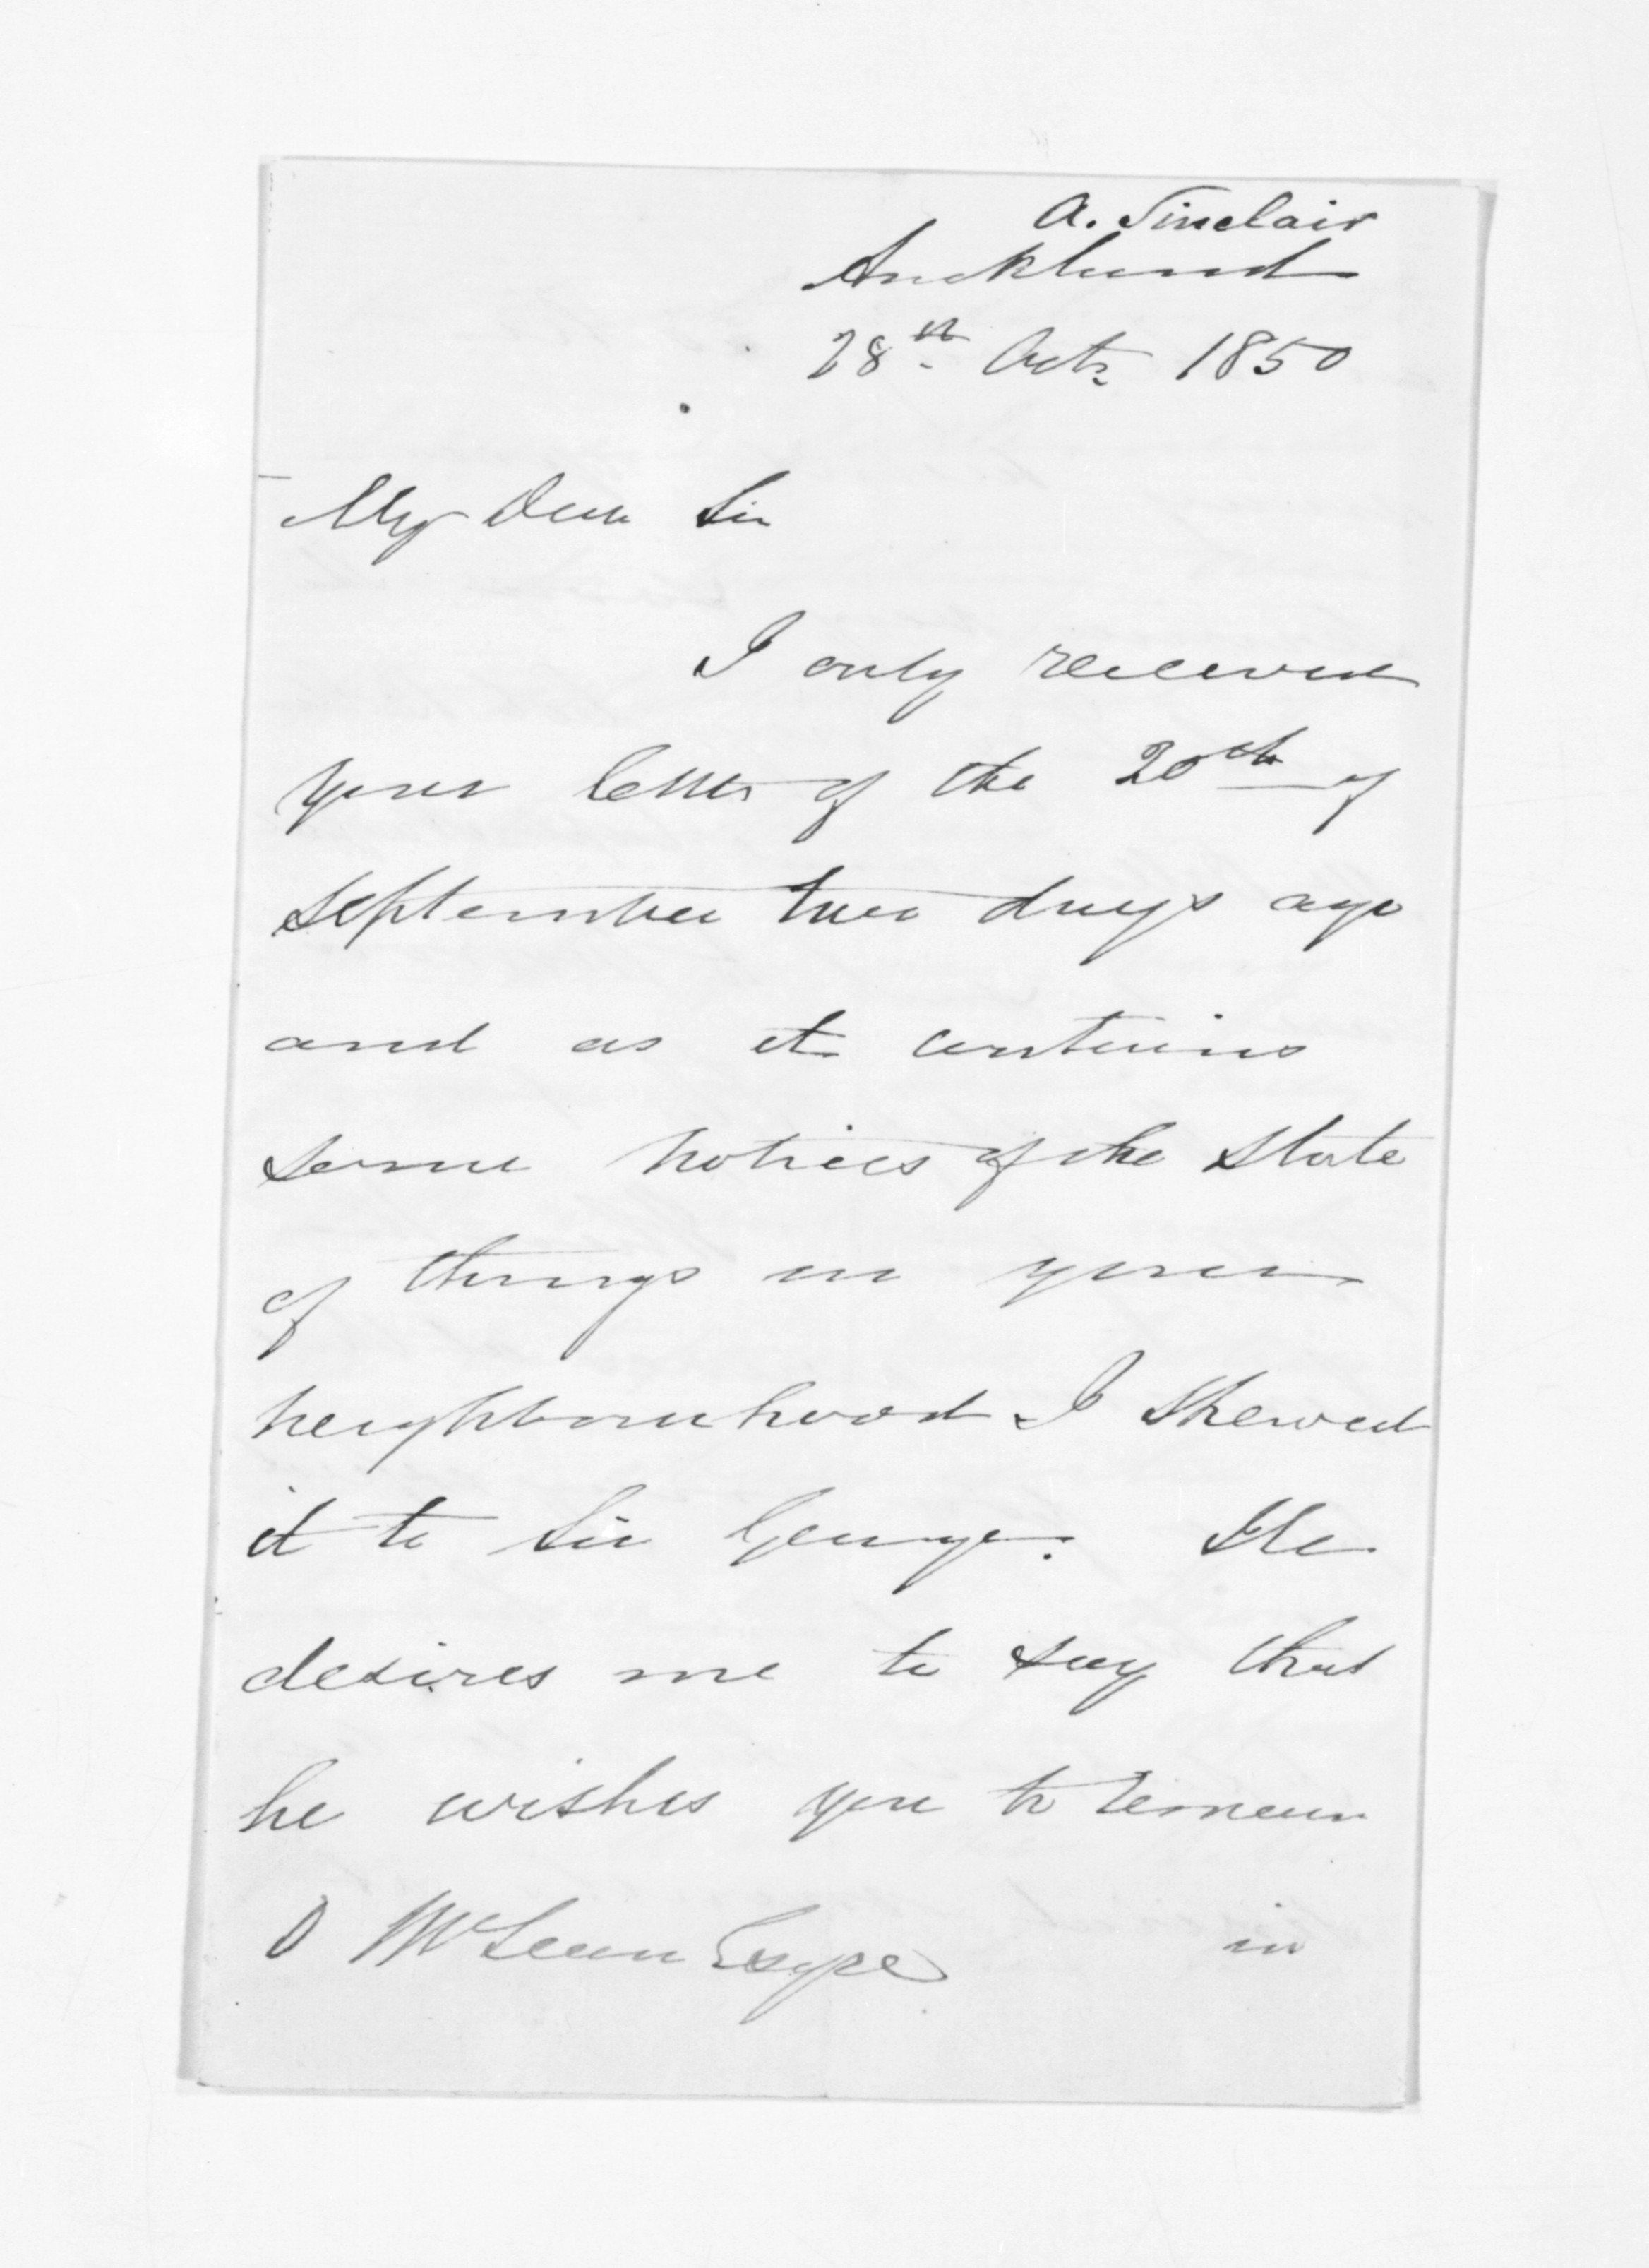 A. Sinclair
Auckland
28th Octr 1850
My Dear Sir
I only received
your letter of the 20th of
September two days ago
and as it contains
some notices of the state
of things in your
neighbourhood I shewed
it to Sir George. He
desires me to say that
he wishes you to remain
D McLean Esqre
in